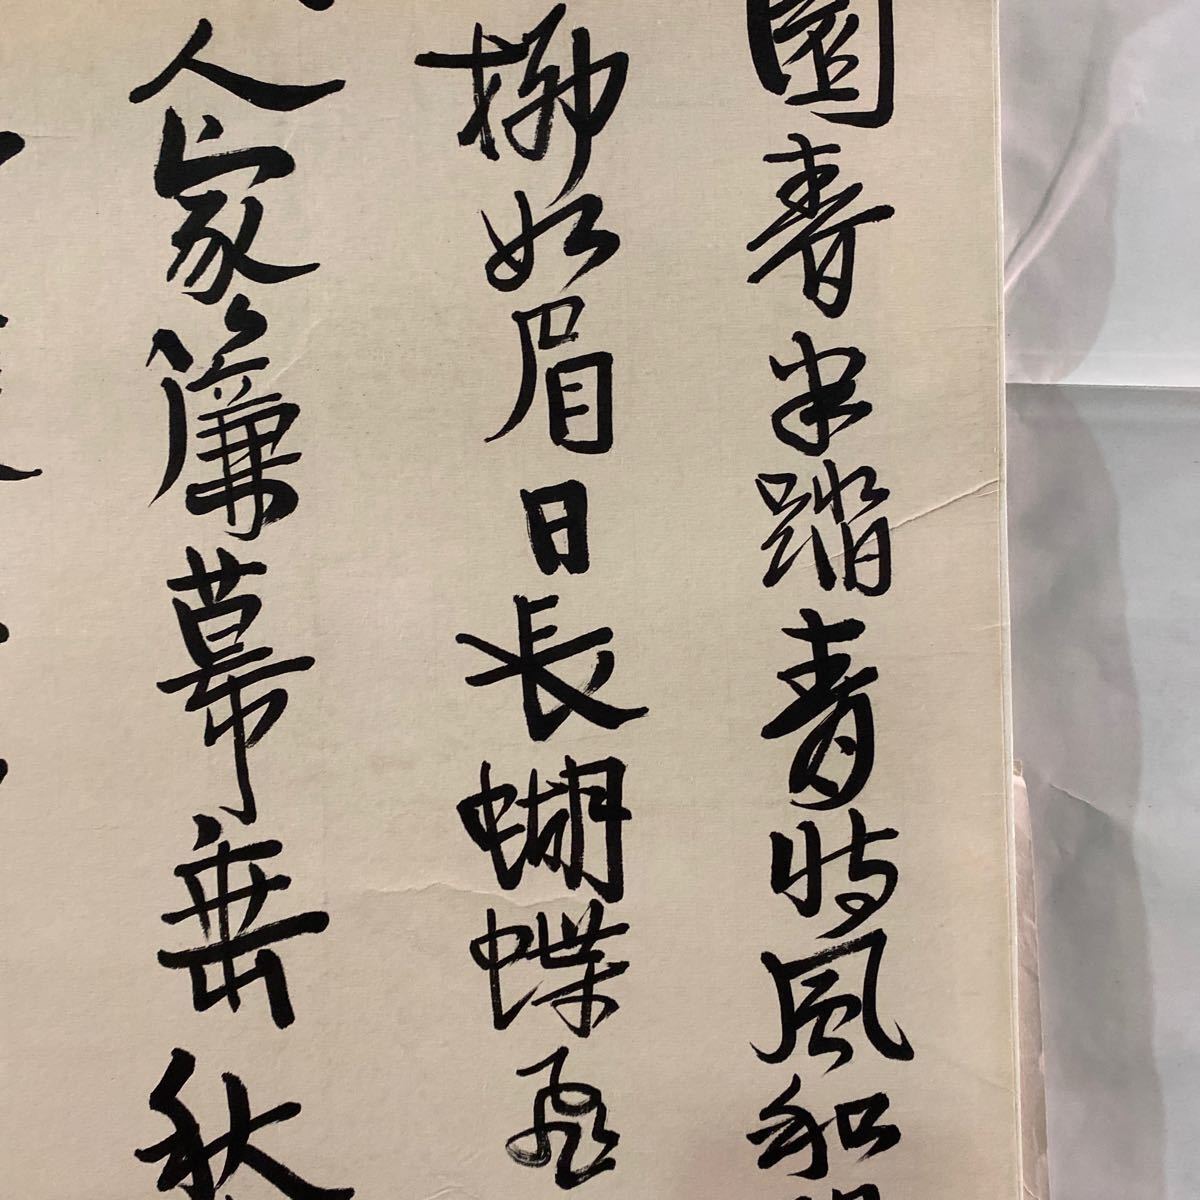 園春半踏青時風和
柳如眉日長蝴蝶飛
人家簾幕垂秋